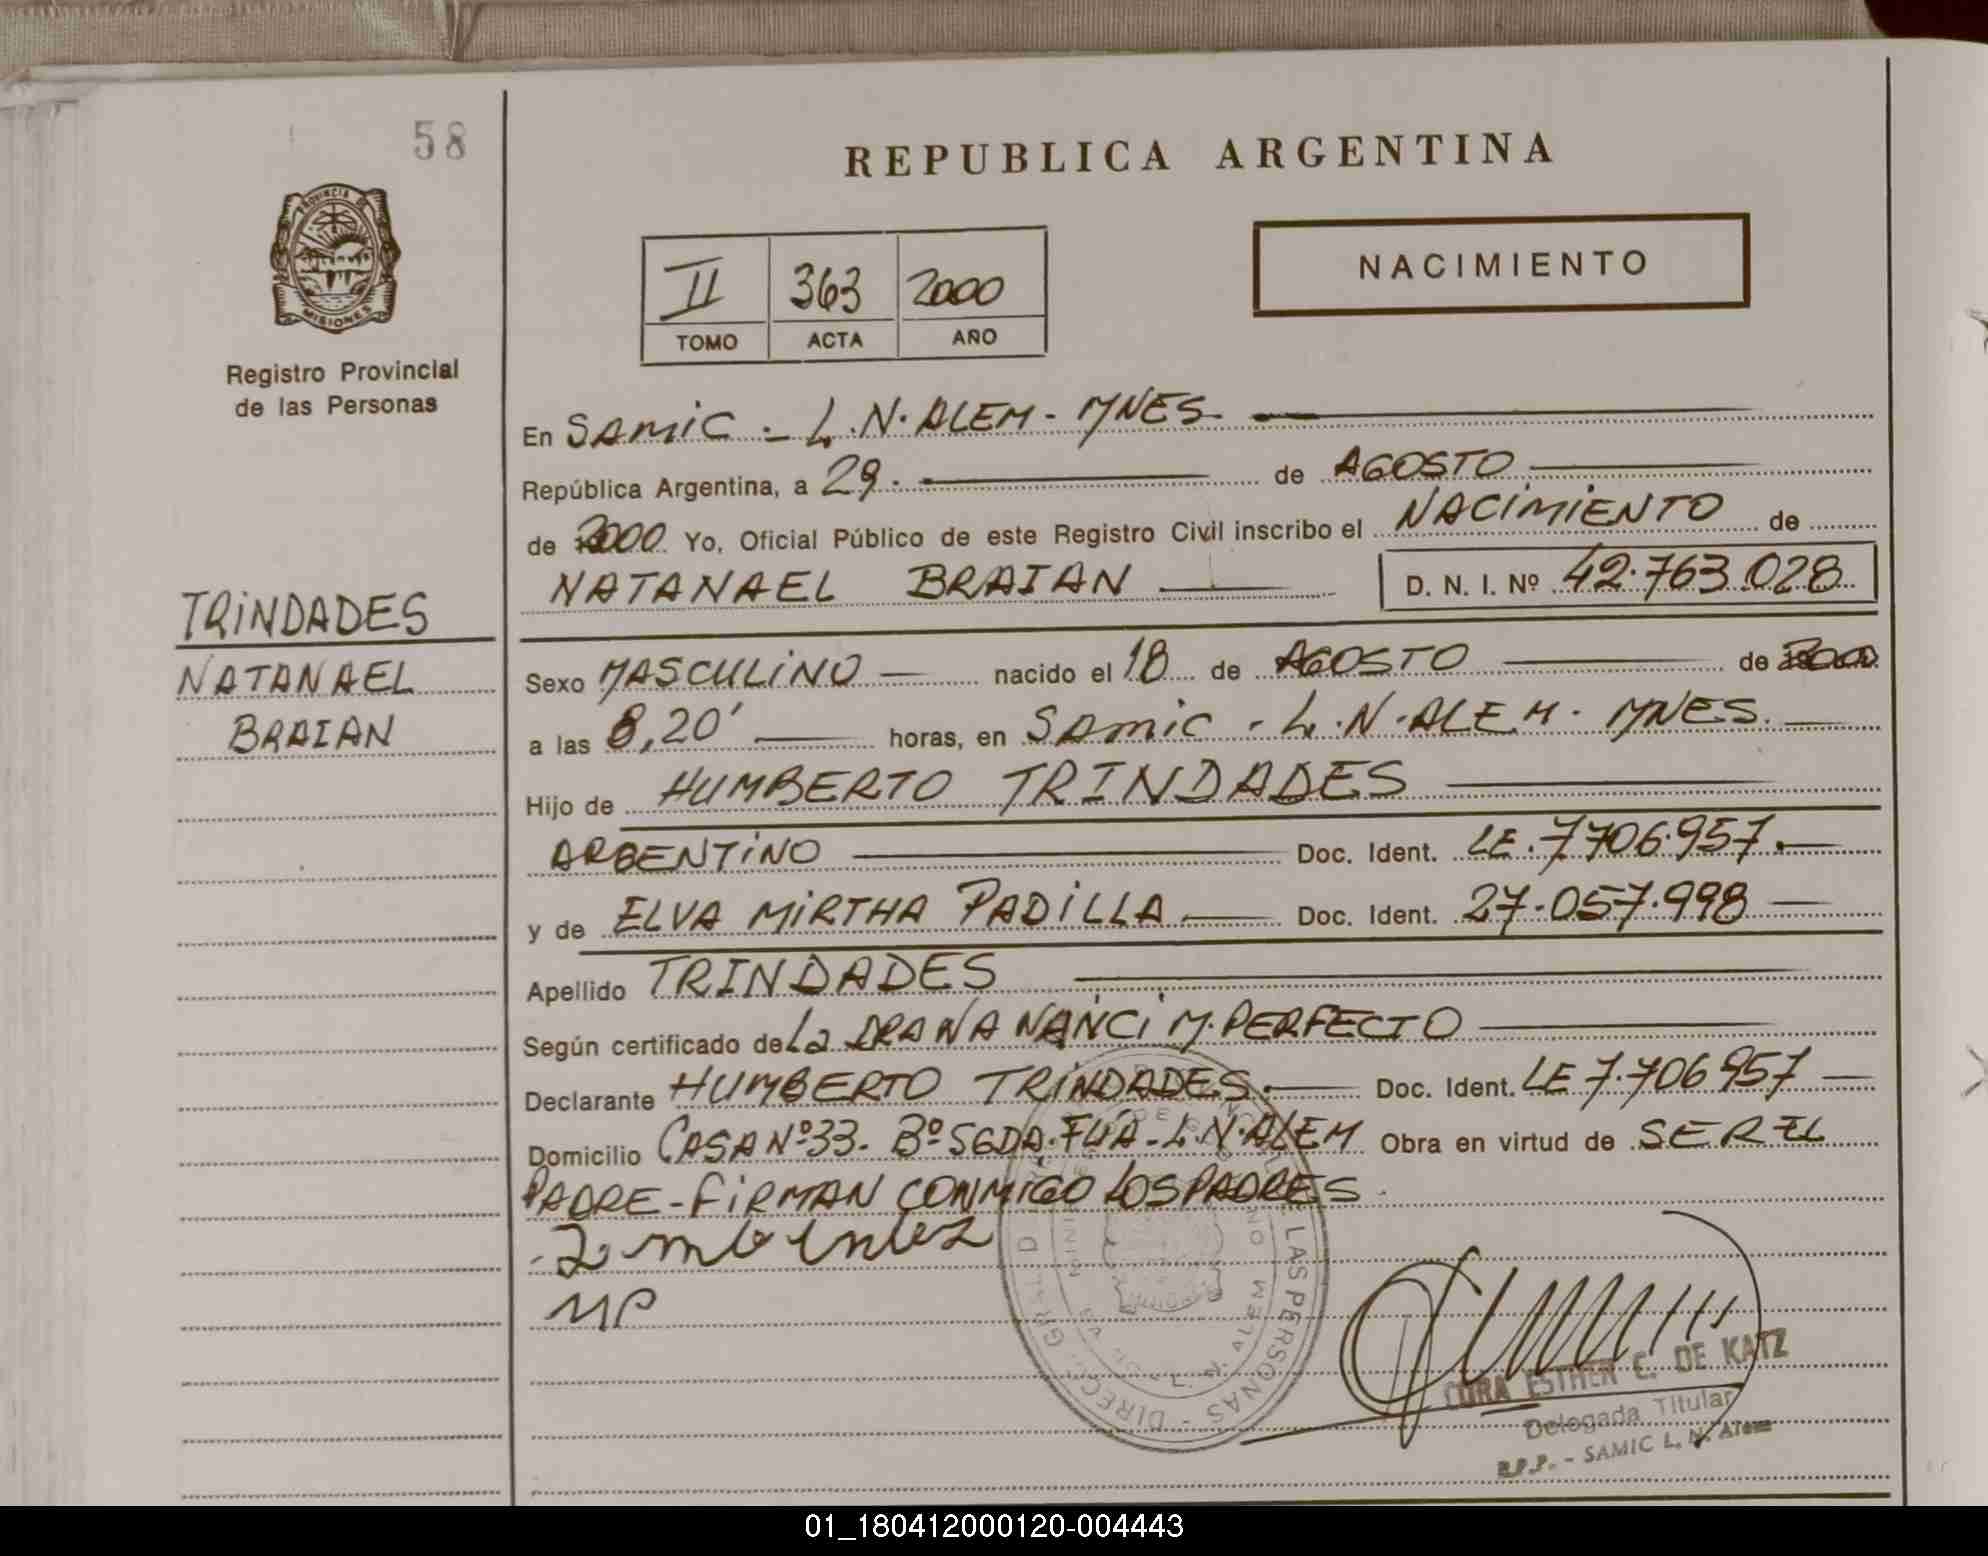 58
REPUBLICA ARGENTINA
PROVINCIA DE
MISIONES
Registro Provincial
de las Personas
II 363 2000
TOMO ACTA AÑO
NACIMIENTO
En SAMIC - L.N. ALEM - MNES.
República Argentina, a 29. de AGOSTO
de 2000 Yo, Oficial Público de este Registro Civil inscribo el NACIMIENTO de
NATANAEL BRAIAN D. N. I. Nº 42.763.028
TRINDADES
NATANAEL
BRAIAN
Sexo MASCULINO nacido el 18 de AGOSTO de 2000
a las 8,20' horas, en SAMIC - L.N. ALEM - MNES.
Hijo de HUMBERTO TRINDADES
ARGENTINO Doc. Ident. LE. 7706.957.
y de ELVA MIRTHA PADILLA Doc. Ident. 27.057.998
Apellido TRINDADES
Según certificado de La DRA NANCI M. PERFECTO
Declarante HUMBERTO TRINDADES. Doc. Ident. LE 7.706957
Domicilio CASA Nº 33. Bº SGDA. FLIA - L.N. ALEM Obra en virtud de SER EL
PADRE - FIRMAN CONMIGO LOS PADRES
MP
LAS PERSONAS - DIREC. GRAL. D
L. N. ALEM
CORA ESTHER C. DE KATZ
Delegada Titular
R.P.P. - SAMIC L. N. Alem
01_180412000120-004443